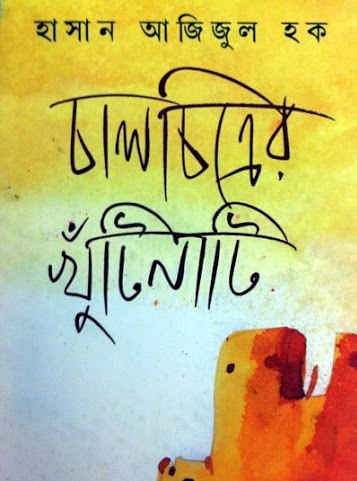 হাসান আজিজুল হক
চালচিত্রের
খুঁটিনাটি